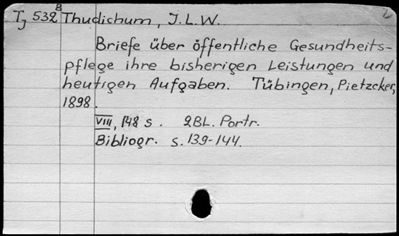 Tj 532 B Thudichum, J.L.W.
Briefe über öffentliche Gesundheits-
pflege ihre bisherigen Leistungen und
heutigen Aufgaben. Tübingen, Pietzcker,
1898.
VIII, 148 s. 2BL. Portr.
Bibliogr. s. 139-144.